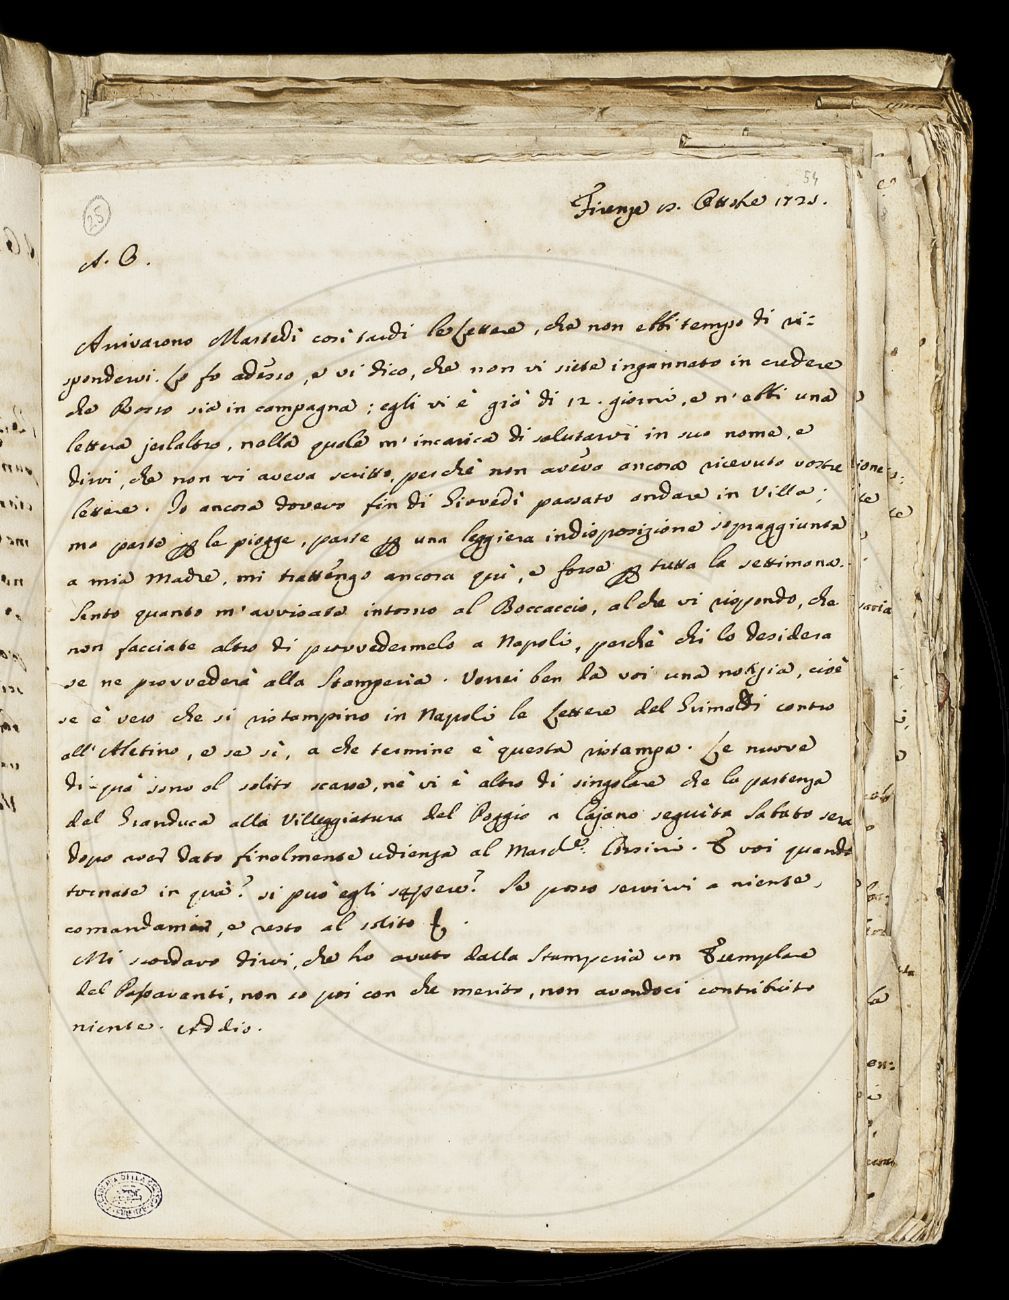 54
25
Firenze Ottobre 1725.
A. C.
Arrivarono Martedì così tardi le Lettere, che non ebbi tempo di ri=
spondervi. Lo fo adesso, e vi dico, che non vi siete ingannato in credere
che Rosso sia in campagna; egli vi è già di 12. giorni, e n'ebbi una
lettera jerlaltro, nella quale m'incarica di salutarvi in suo nome, e
dirvi, che non vi aveva scritto, perchè non aveva ancora ricevuto vostre
lettere. Io ancora dovevo fin di Giovedì passato andare in Villa;
ma parte p le piogge, parte p una leggiera indisposizione sopraggiunta
a mia Madre, mi trattengo ancora quì, e forse p tutta la settimana.
Sento quanto m'avvisate intorno al Boccaccio, al che vi rispondo, che
non facciate altro di provvedermelo a Napoli, perchè chi lo desidera
se ne provvederà alla Stamperia. Vorrei ben da voi una notizia, cioè
se è vero che si ristampino in Napoli le Lettere del Grimaldi contro
all'Aletino, e se sì, a che termine è questa ristampa. Le nuove
di quà sono al solito scarse, nè vi è altro di singolare che la partenza
del Granduca alla Villeggiatura del Poggio a Cajano seguita Sabato sera
dopo aver dato finalmente udienza al March.e Corsini. E voi quando
tornate in quà? si può egli sapere? Se posso servirvi a niente,
comandami, e resto al solito
Mi scordavo dirvi, che ho avuto dalla Stamperia un Esemplare
del Passavanti, non so poi con che merito, non avendoci contribuito
niente. Addio.